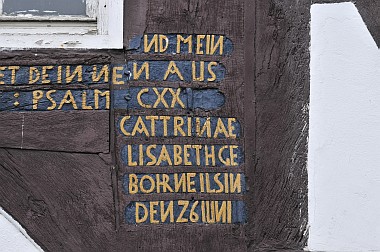 ND MEIN
ET DEINNEN AUS
: PSALM CXX
CATTRINAE
LISABETHGE
BORNEILSIN
DENZ6IUNI